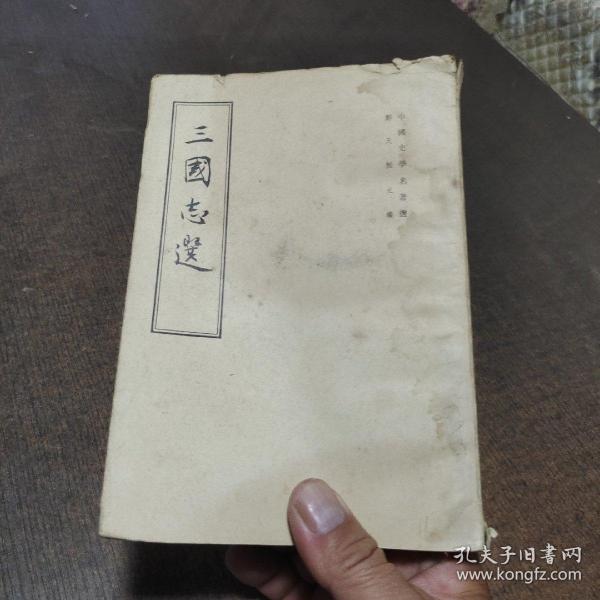 中國史學名著選
鄭天挺主編
三國志選
孔夫子旧書网
www.kongfz.com